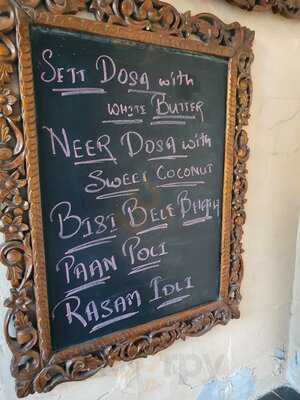 SETT DOSA with
WHITE BUTTER
NEER DOSA with
SWEET COCONUT
BISI BELE BHATH
PAAN POLI
RASAM IDLI